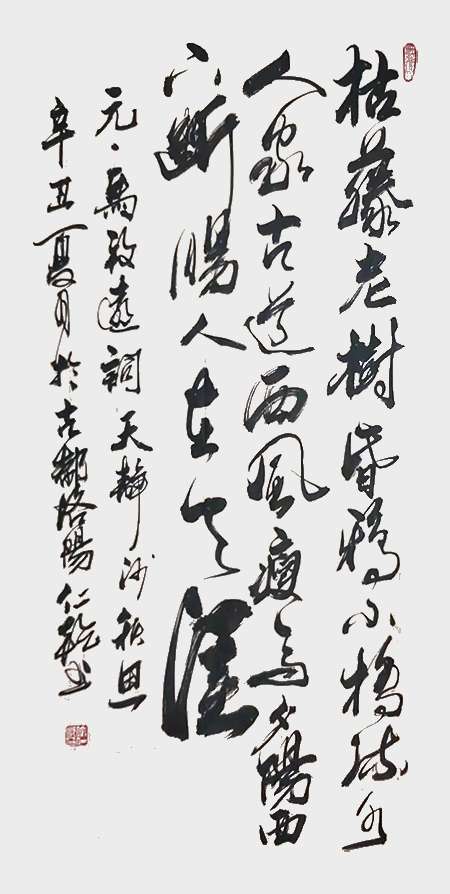 枯藤老樹昏鴉小橋流水
人家古道西風瘦馬夕陽西
下斷腸人在天涯
元·馬致遠詞天静沙秋思
辛丑夏月於古都洛陽仁乾书